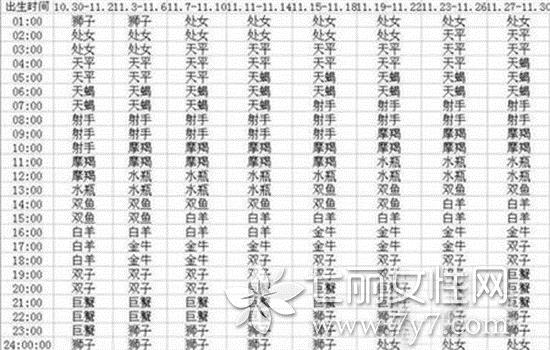 出生时间 10.30-11.2 11.3-11.6 11.7-11.10 11.11-11.14 11.15-11.18 11.19-11.22 11.23-11.26 11.27-11.30
01:00 狮子 狮子 处女 处女 处女 处女 处女 处女
02:00 处女 处女 处女 处女 处女 处女 天平 天平
03:00 处女 处女 天平 天平 天平 天平 天平 天平
04:00 天平 天平 天平 天平 天平 天平 天平 天蝎
05:00 天平 天平 天平 天蝎 天蝎 天蝎 天蝎 天蝎
06:00 天蝎 天蝎 天蝎 天蝎 天蝎 天蝎 天蝎 天蝎
07:00 天蝎 天蝎 天蝎 天蝎 射手 射手 射手 射手
08:00 射手 射手 射手 射手 射手 射手 射手 射手
09:00 射手 射手 射手 射手 射手 摩羯 摩羯 摩羯
10:00 射手 摩羯 摩羯 摩羯 摩羯 摩羯 摩羯 摩羯
11:00 摩羯 摩羯 摩羯 摩羯 摩羯 水瓶 水瓶 水瓶
12:00 摩羯 水瓶 水瓶 水瓶 水瓶 水瓶 水瓶 水瓶
13:00 水瓶 水瓶 水瓶 水瓶 双鱼 双鱼 双鱼 双鱼
14:00 双鱼 双鱼 双鱼 双鱼 双鱼 双鱼 白羊 白羊
15:00 双鱼 双鱼 白羊 白羊 白羊 白羊 白羊 白羊
16:00 白羊 白羊 白羊 白羊 金牛 金牛 金牛 金牛
17:00 白羊 金牛 金牛 金牛 金牛 金牛 金牛 双子
18:00 白羊 金牛 金牛 双子 双子 双子 双子 双子
19:00 双子 双子 双子 双子 巨蟹
20:00 双子 双子 双子 巨蟹
21:00 巨蟹 巨蟹 巨蟹 巨蟹
22:00 巨蟹 巨蟹 巨蟹 狮子
23:00 巨蟹 狮子 狮子 狮子
24:00:00 狮子 狮子 狮子 狮子 狮子 处女 处女 处女
丽女性网
www.7y7.com